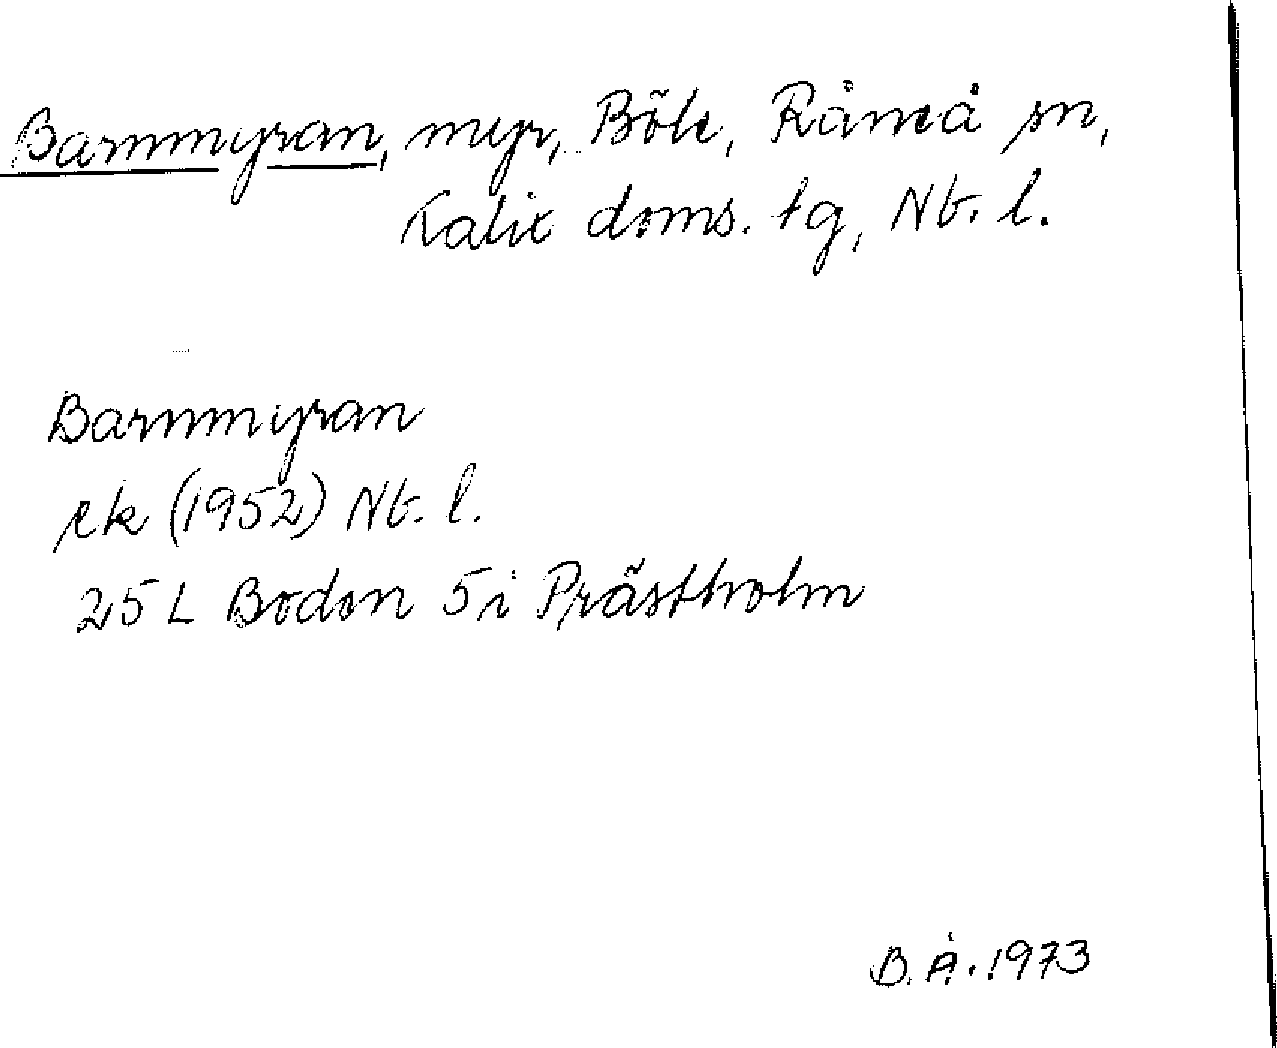 Barnmyran, myr, Böle, Råneå sn,
Kalix doms. tg, Nb. l.
Barnmyran
ek (1952) Nb. l.
25 L Boden 5i Prästholm
B.Å. 1973